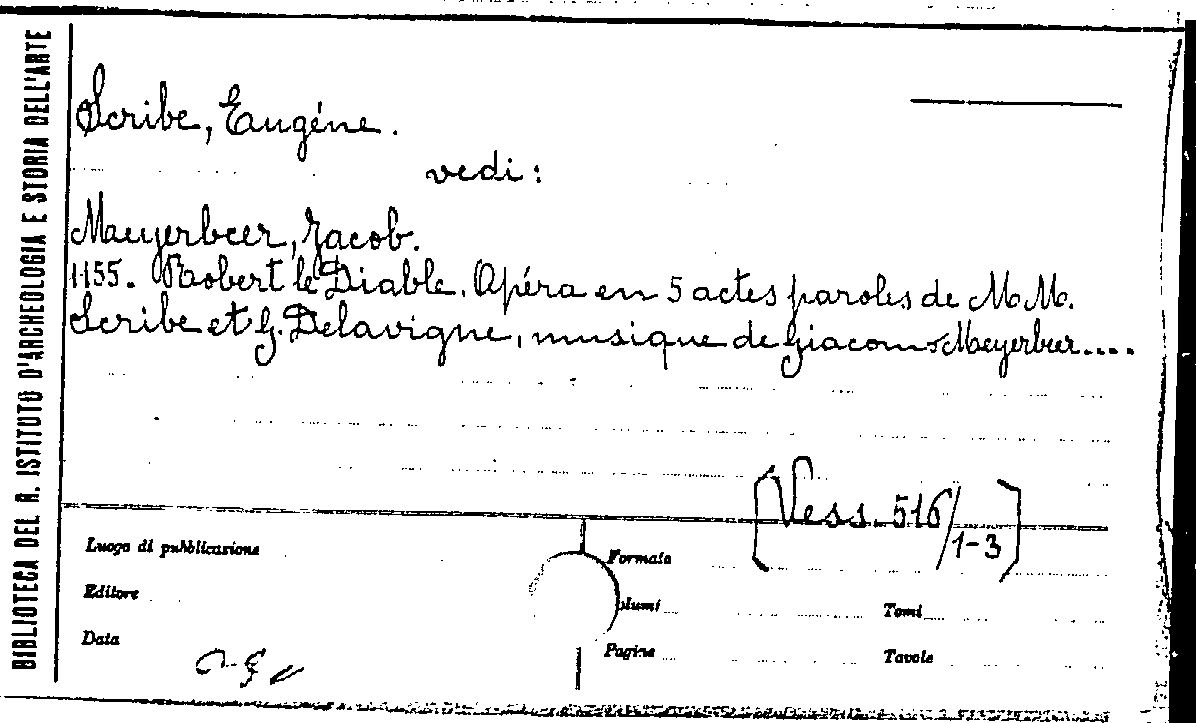 BIBLIOTECA DEL R. ISTITUTO D'ARCHEOLOGIA E STORIA DELL'ARTE
Scribe, Eugéne.
vedi:
Meyerbeer, Jacob.
1155. Robert le Diable. Opéra en 5 actes paroles de M. M.
Scribe et G. Delavigne, musique de Giacomo Meyerbeer....
[Vess. 516/1-3]
Luogo di pubblicazione
Formato
Editore
olumi
Tomi
Data
Pagine
Tavole